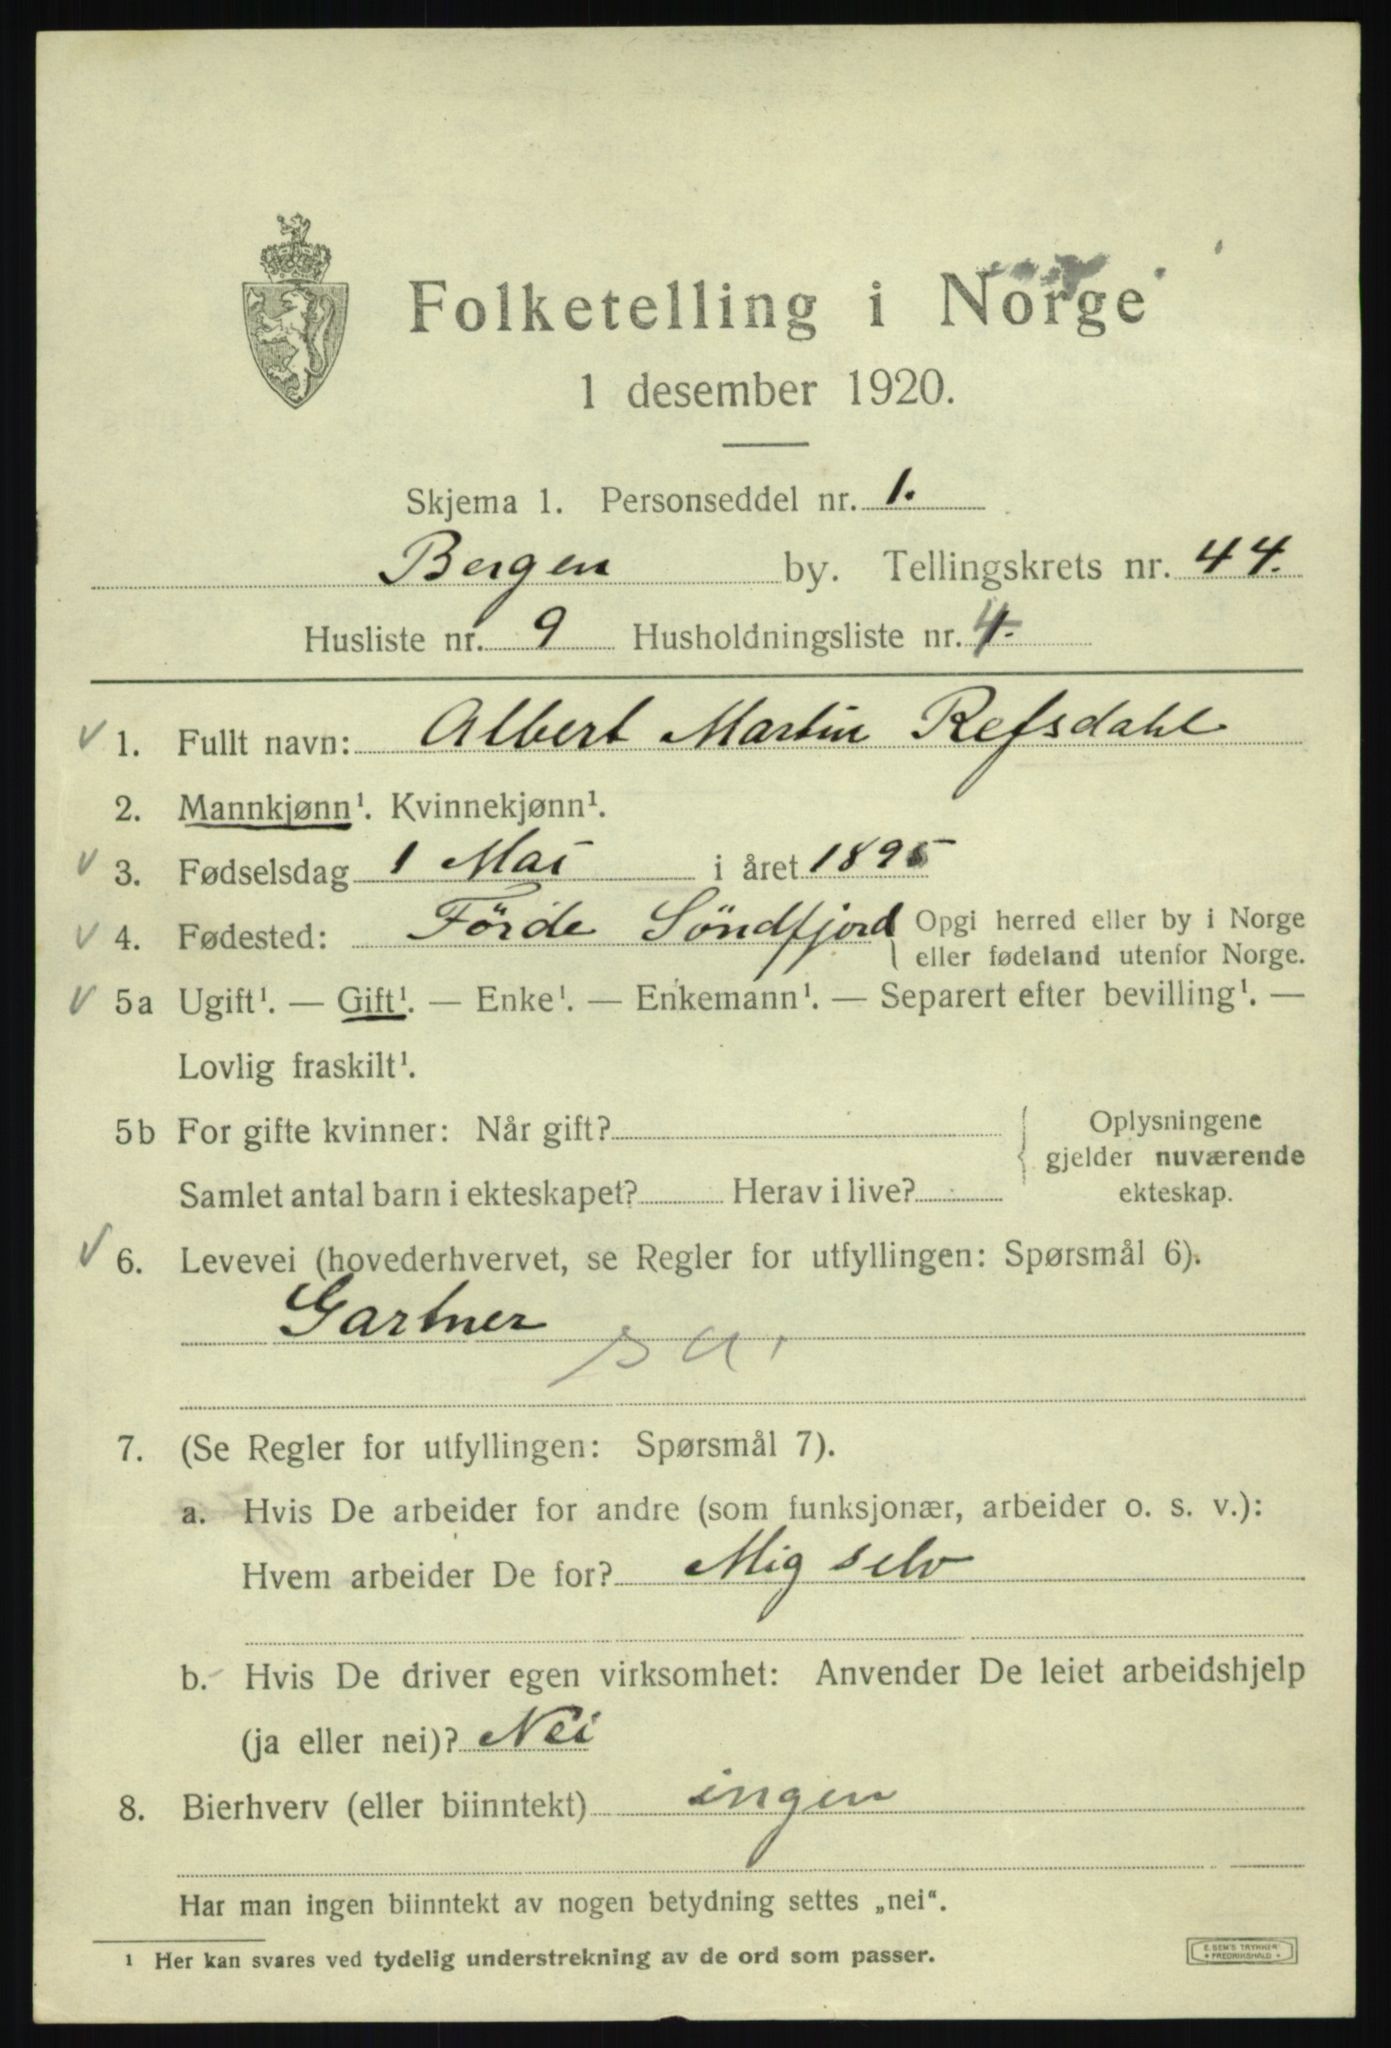 Folketelling i Norge
1 desember 1920.
Skjema 1. Personseddel nr. 1.
Bergen by. Tellingskrets nr. 44.
Husliste nr. 9 Husholdningsliste nr. 4.
1. Fullt navn: Albert Martin Refsdahl
2. Mannkjønn¹. Kvinnekjønn¹.
3. Fødselsdag 1 Mai i året 1895
4. Fødested: Förde Söndfjord { Opgi herred eller by i Norge
eller fødeland utenfor Norge.
5a Ugift¹. — Gift¹. — Enke¹. — Enkemann¹. — Separert efter bevilling¹. —
Lovlig fraskilt¹.
5b For gifte kvinner: Når gift? { Oplysningene
gjelder nuværende
Samlet antal barn i ekteskapet? Herav i live? ekteskap.
6. Levevei (hovederhvervet, se Regler for utfyllingen: Spørsmål 6).
Gartner
s a.
7. (Se Regler for utfyllingen: Spørsmål 7).
a. Hvis De arbeider for andre (som funksjonær, arbeider o. s. v.):
Hvem arbeider De for? Mig selv
b. Hvis De driver egen virksomhet: Anvender De leiet arbeidshjelp
(ja eller nei)? Nei
8. Bierhverv (eller biinntekt) ingen
Har man ingen biinntekt av nogen betydning settes „nei“.
¹ Her kan svares ved tydelig understrekning av de ord som passer.
E. SEM'S TRYKKERI
FREDRIKSHALD